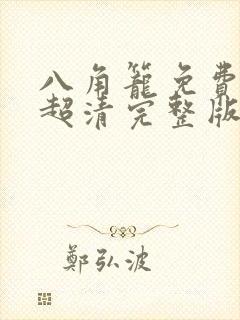 八角籠免費
超清完整版
鄭弘波